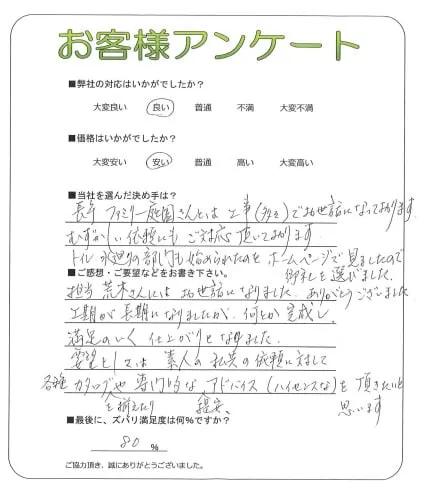 お客様アンケート
■弊社の対応はいかがでしたか?
大変良い 良い 普通 不満 大変不満
■価格はいかがでしたか?
大変安い 安い 普通 高い 大変高い
■当社を選んだ決め手は?
長年 ファミリー庭園さんとは 工事(多々)でお世話になっております
むずかしい依頼にも ご対応頂いております
トイレ 水廻りの部門も始められたのを ホームページで見ましたので
御社を選びました。
■ご感想・ご要望などをお書き下さい。
担当 荒木さんには お世話になりました。ありがとうございました
工期が長期になりましたが、何とか完成し、
満足のいく 仕上がりとなりました。
要望としては 素人の私共の依頼に対して
各種 カタログや 専門的な アドバイス(ハイセンスな)を 頂きたいと
を揃えたり 提案、 思います
■最後に、ズバリ満足度は何%ですか?
80 %
ご協力頂き、誠にありがとうございました。